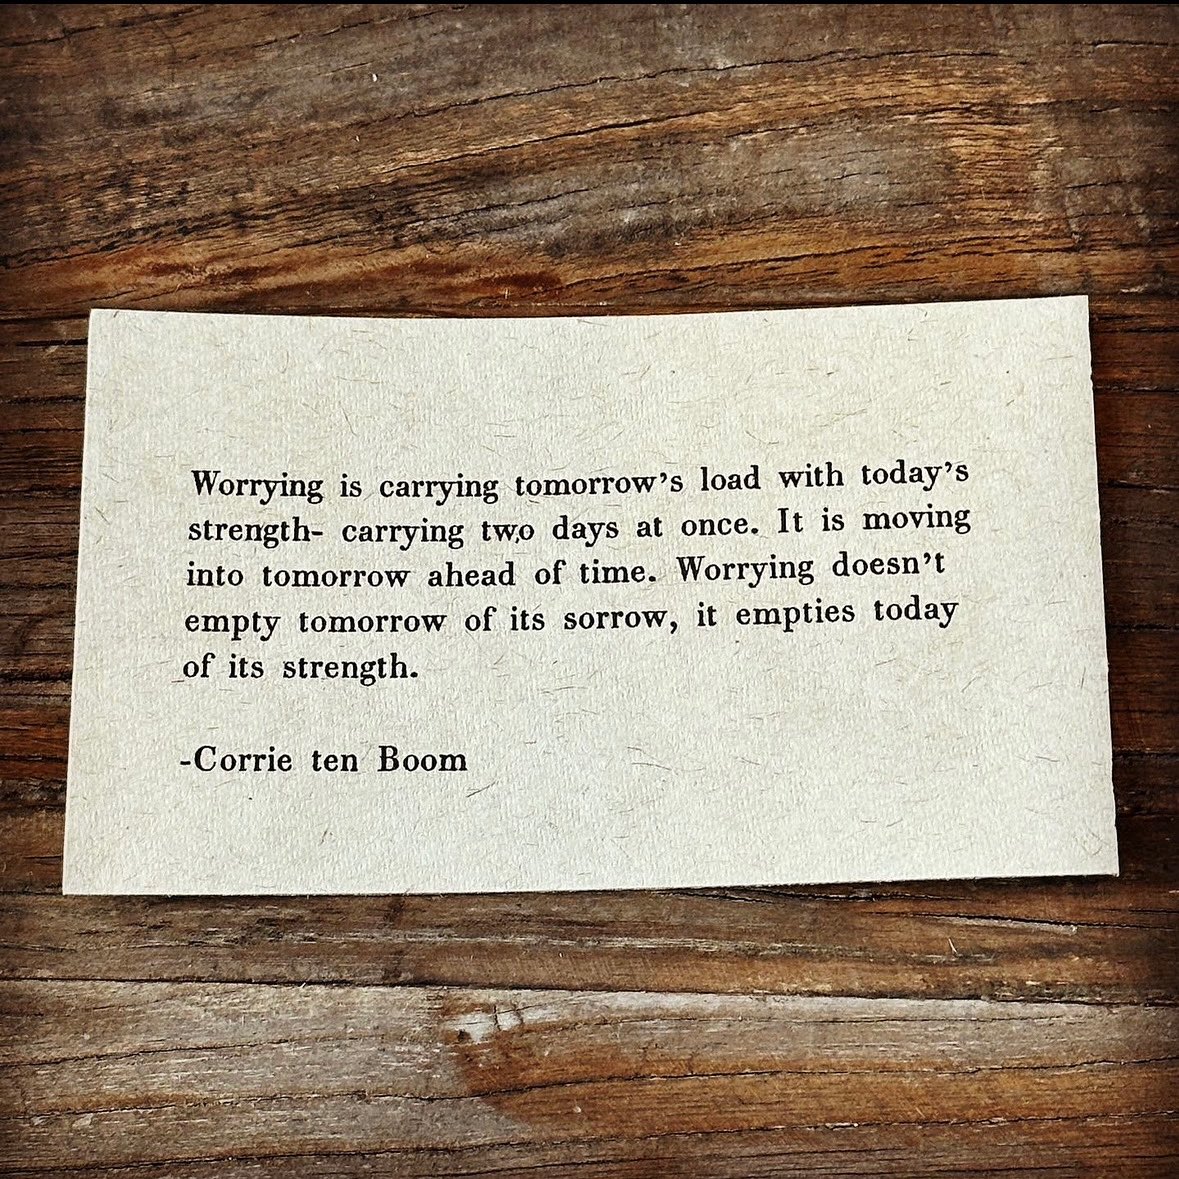 Worrying is carrying tomorrow's load with today's
strength- carrying two days at once. It is moving
into tomorrow ahead of time. Worrying doesn't
empty tomorrow of its sorrow, it empties today
of its strength.
-Corrie ten Boom